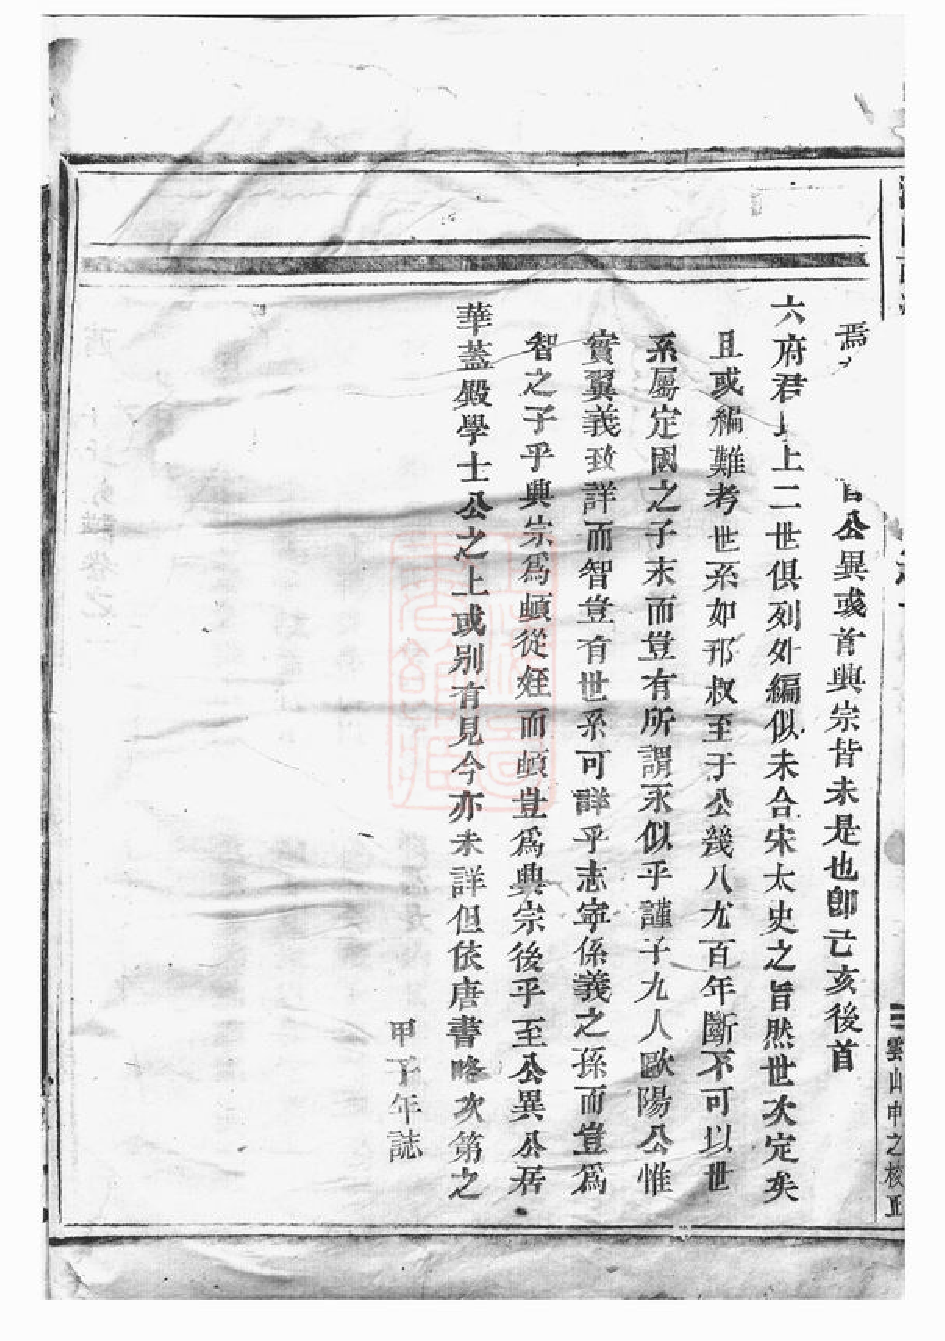 雲山中之校正
焉
公異或首興宗皆未是也卽己亥後首
六府君以上二世俱列外編似未合宋太史之旨然世次定矣
且或編難考世系如邘叔至于公幾八九百年斷不可以世
系屬定國之子末而豈有所謂永似乎謹子九人歐陽公惟
實翼義致詳而智豈有世系可詳乎志寧係義之孫而豈爲
智之子乎興宗爲頔從姪而頔豈爲興宗後乎至公異公居
華蓋殿學士公之上或別有見今亦未詳但依唐書略次第之
甲子年誌